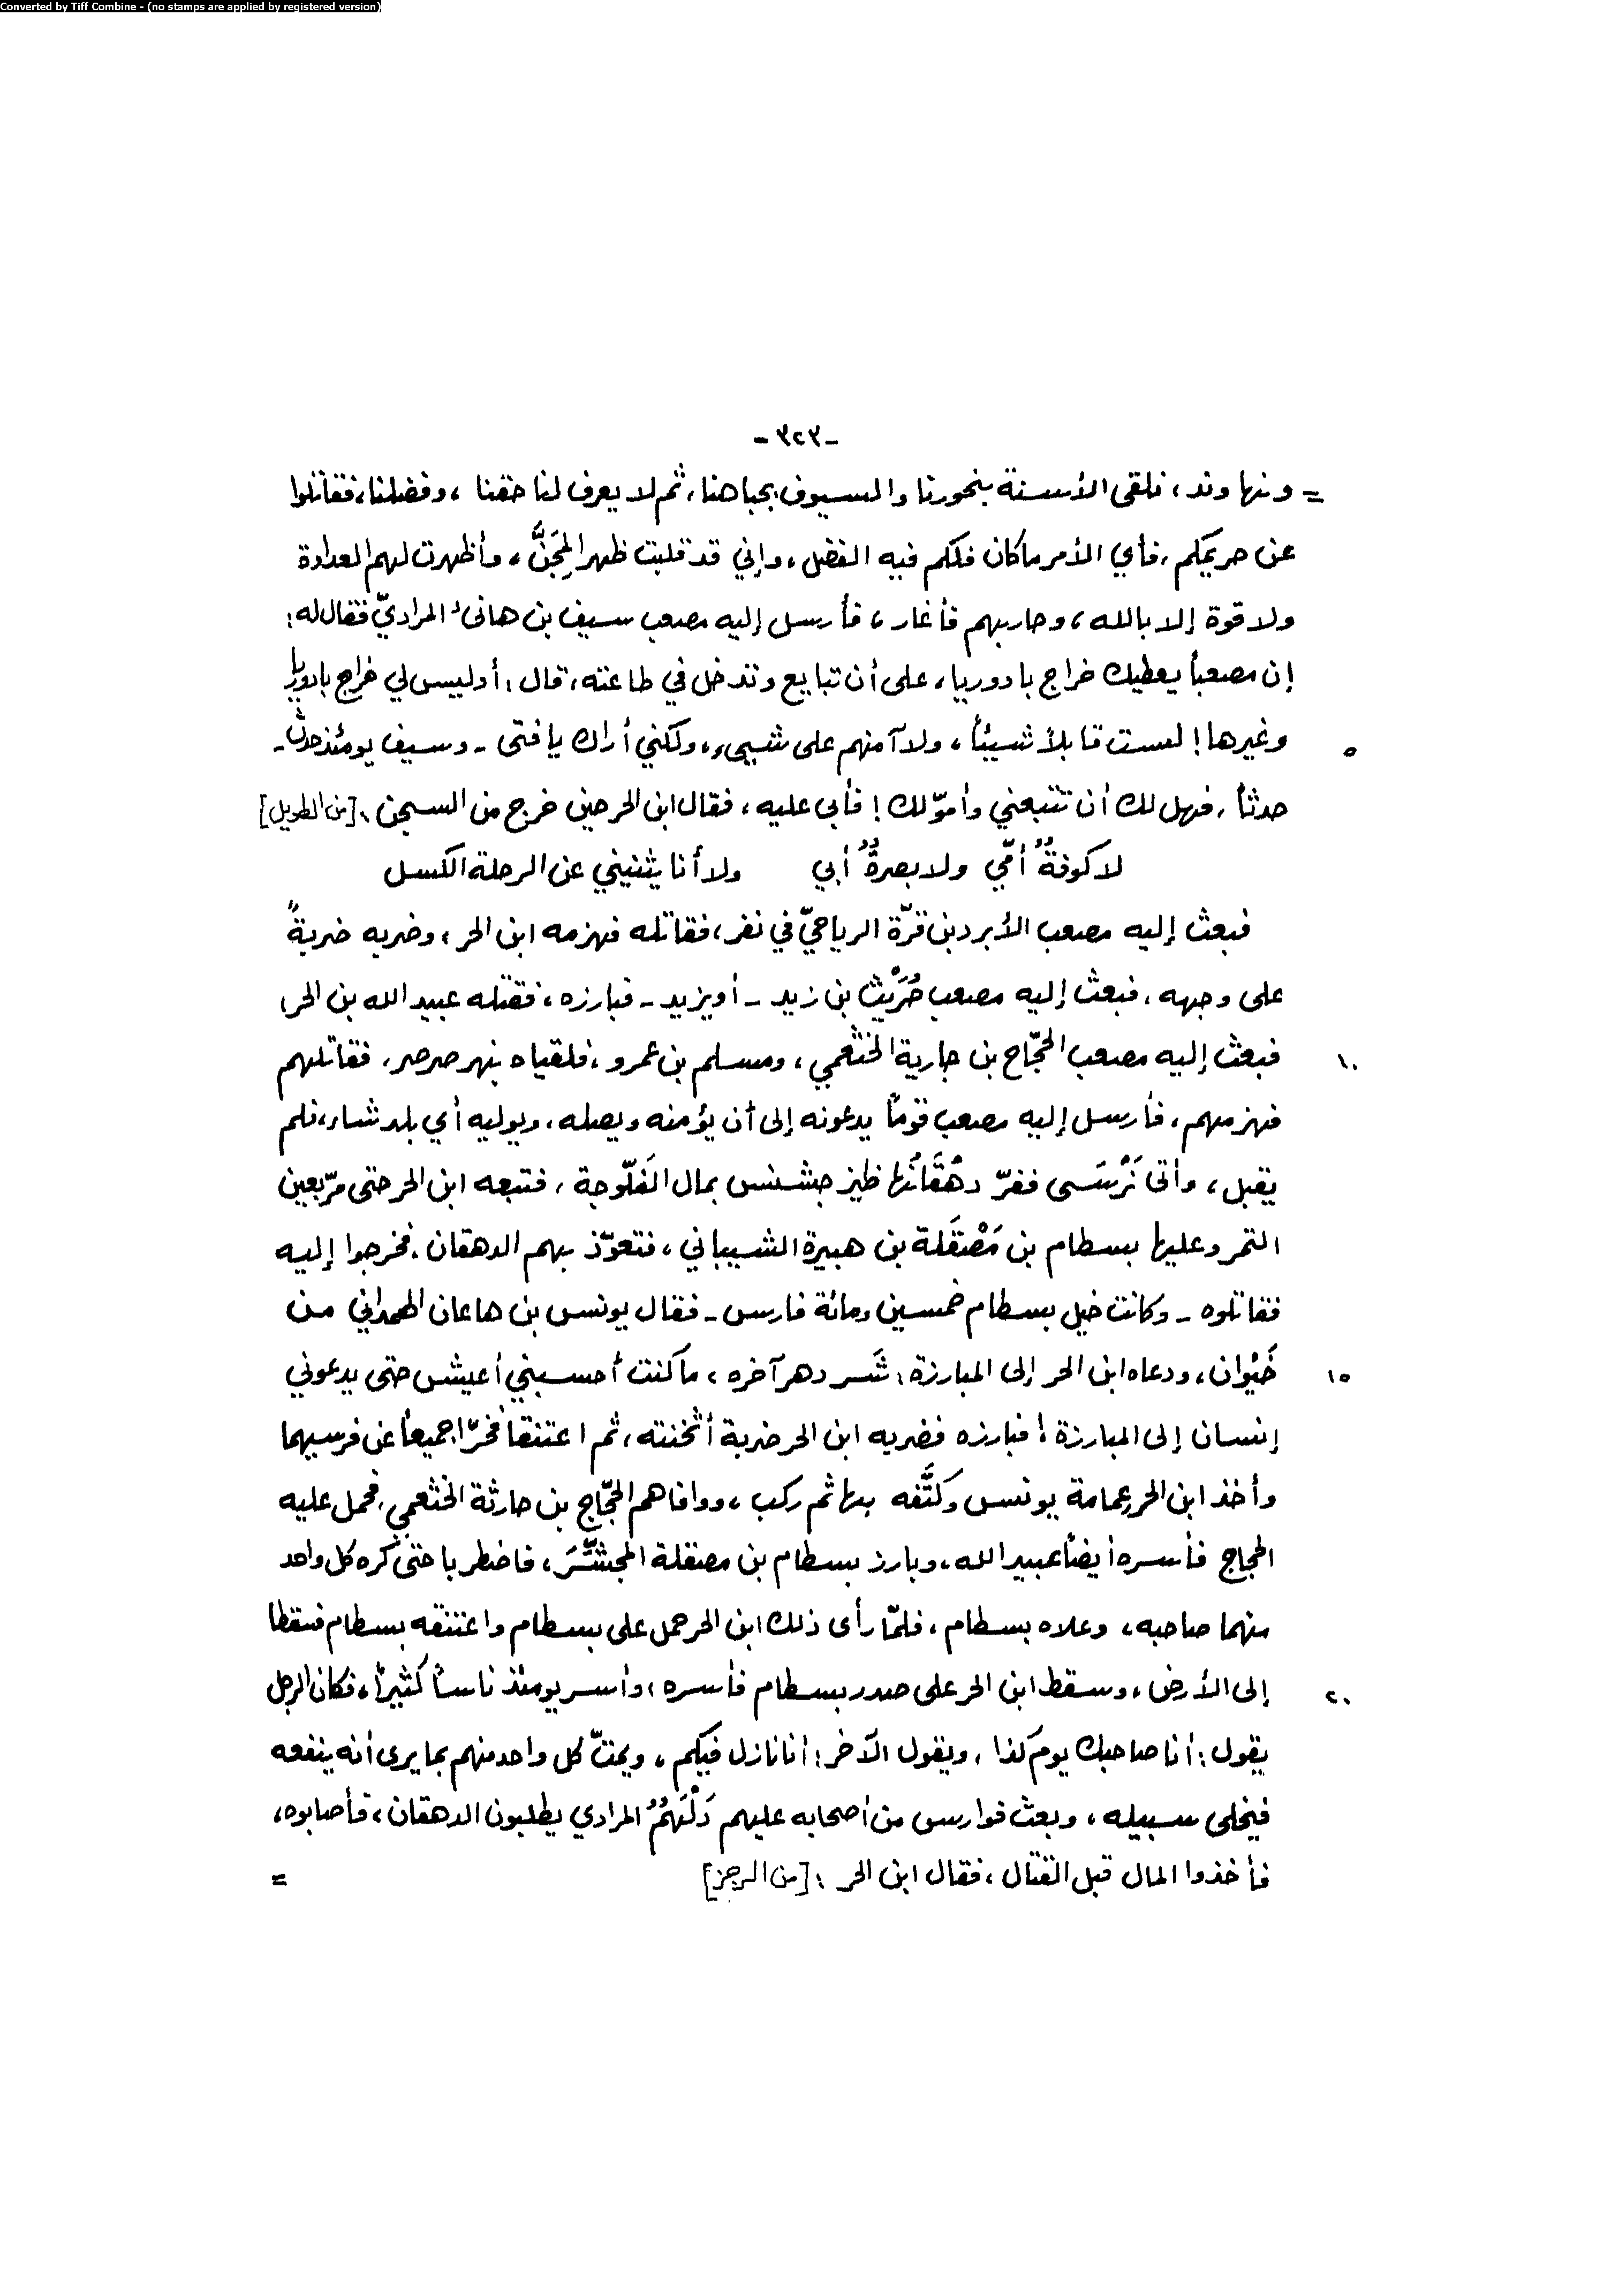 Converted by Tiff Combine - (no stamps are applied by registered version)
-٣٢٣-
= ونهاوند، نلقى الأسنة بنحورنا والسيوف بجباهنا، ثم لا يعرف لنا حقنا، وفضلنا، فقاتلوا
عن حريمكم، فأي الأمر ما كان فلكم فيه الفضل، وإني قد قلبت ظهر المِجَنَّ، وأظهرت لهم العداوة
ولا قوة إلا بالله، وحاربهم فأغار، فأرسل إليه مصعب سيف بن هانىء المراديّ فقال له:
إن مصعباً يعطيك خراج بادوريا، على أن تبايع وتدخل في طاعته، قال: أوليس لي خراج بادوريا
وغيرها! لست قابلاً شيئاً، ولا آمنهم على شيىء، ولكني أراك يا فتى - وسيف يومئذ حدث -
٥
حدثاً، فهل لك أن تتبعني وأموّلك! فأبى عليه، فقال ابن الحر حين خرج من السجن: [من الطويل]
لا كوفةٌ أمّي ولا بصرةٌ أبي ولا أنا يثنيني عن الرحلة الكسل
فبعث إليه مصعب الأبرد بن قرّة الرياحيّ في نفر، فقاتله فهزمه ابن الحر، وضربه ضربةً
على وجهه، فبعث إليه مصعب حُرَيْث بن زيد - أو يزيد - فبارزه، فقتله عبيد الله بن الحر،
فبعث إليه مصعب الحجّاج بن جارية الخثعمي، ومسلم بن عمرو، فلقياه بنهر صرصر، فقاتلهم
١٠
فهزمهم، فأرسل إليه مصعب قوماً يدعونه إلى أن يؤمنه ويصله، ويوليه أي بلد شاء، فلم
يقبل، وأتى نَرْسَى ففرّ دهْقَانُها ظيز جشنس بمال الفَلّوجة، فتبعه ابن الحر حتى مرّ بعين
التمر وعليها بسطام بن مَصْقَلة بن هبيرة الشيباني، فتعوّذ بهم الدهقان، فخرجوا إليه
فقاتلوه - وكانت خيل بسطام خمسين ومائة فارس - فقال يونس بن هاعان الهمداني من
خَيْوان، ودعاه ابن الحر إلى المبارزة: شَر دهر آخره، ما كنت أحسبني أعيش حتى يدعوني
١٥
إنسان إلى المبارزة! فبارزه فضربه ابن الحر ضربة أثخنته، ثم اعتنقا فخرّا جميعاً عن فرسيهما
وأخذ ابن الحر عمامة يونس وكتَّفه بها ثم ركب، ووافاهم الحجّاج بن حارثة الخثعمي، فحمل عليه
الحجاج فأسره أيضاً عبيد الله، وبارز بسطام بن مصقلة المجشَّرَ، فاضطربا حتى كره كل واحد
منهما صاحبه، وعلاه بسطام، فلمّا رأى ذلك ابن الحر حمل على بسطام واعتنقه بسطام فسقطا
إلى الأرض، وسقط ابن الحر على صدر بسطام فأسره، وأسر يومئذ ناساً كثيراً، فكان الرجل
٢٠
يقول: أنا صاحبك يوم كذا، ويقول الآخر: أنا نازل فيكم، ويمتّ كل واحد منهم بما يرى أنه ينفعه
فيخلى سبيله، وبعث فوارس من أصحابه عليهم دَلْهَمُ المرادي يطلبون الدهقان، فأصابوه،
فأخذوا المال قبل القتال، فقال ابن الحر: [من الرجز]
=